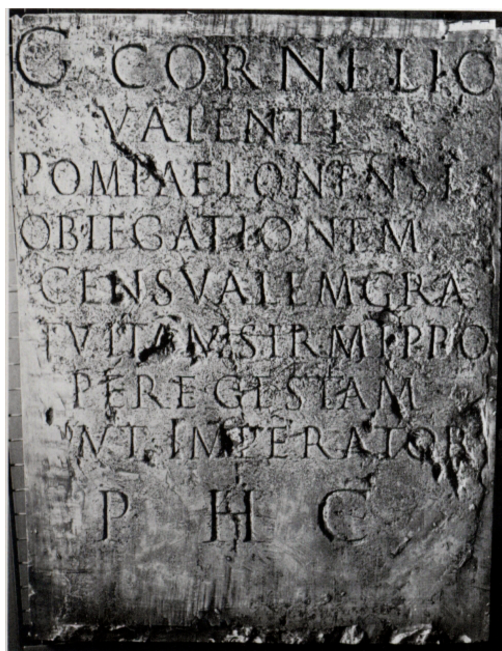 G CORNELIO
VALENTI
POMPAELONENSI
OB LEGATIONEM
CENSVALEM GRA
TVITAM SIRMI PRO
PERE GESTAM
APVT IMPERATOR
P H C